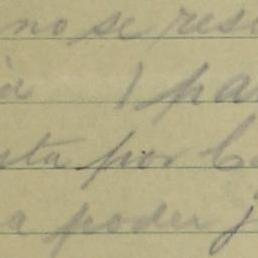 no se res
a 1 pa
sta por C
a poder j